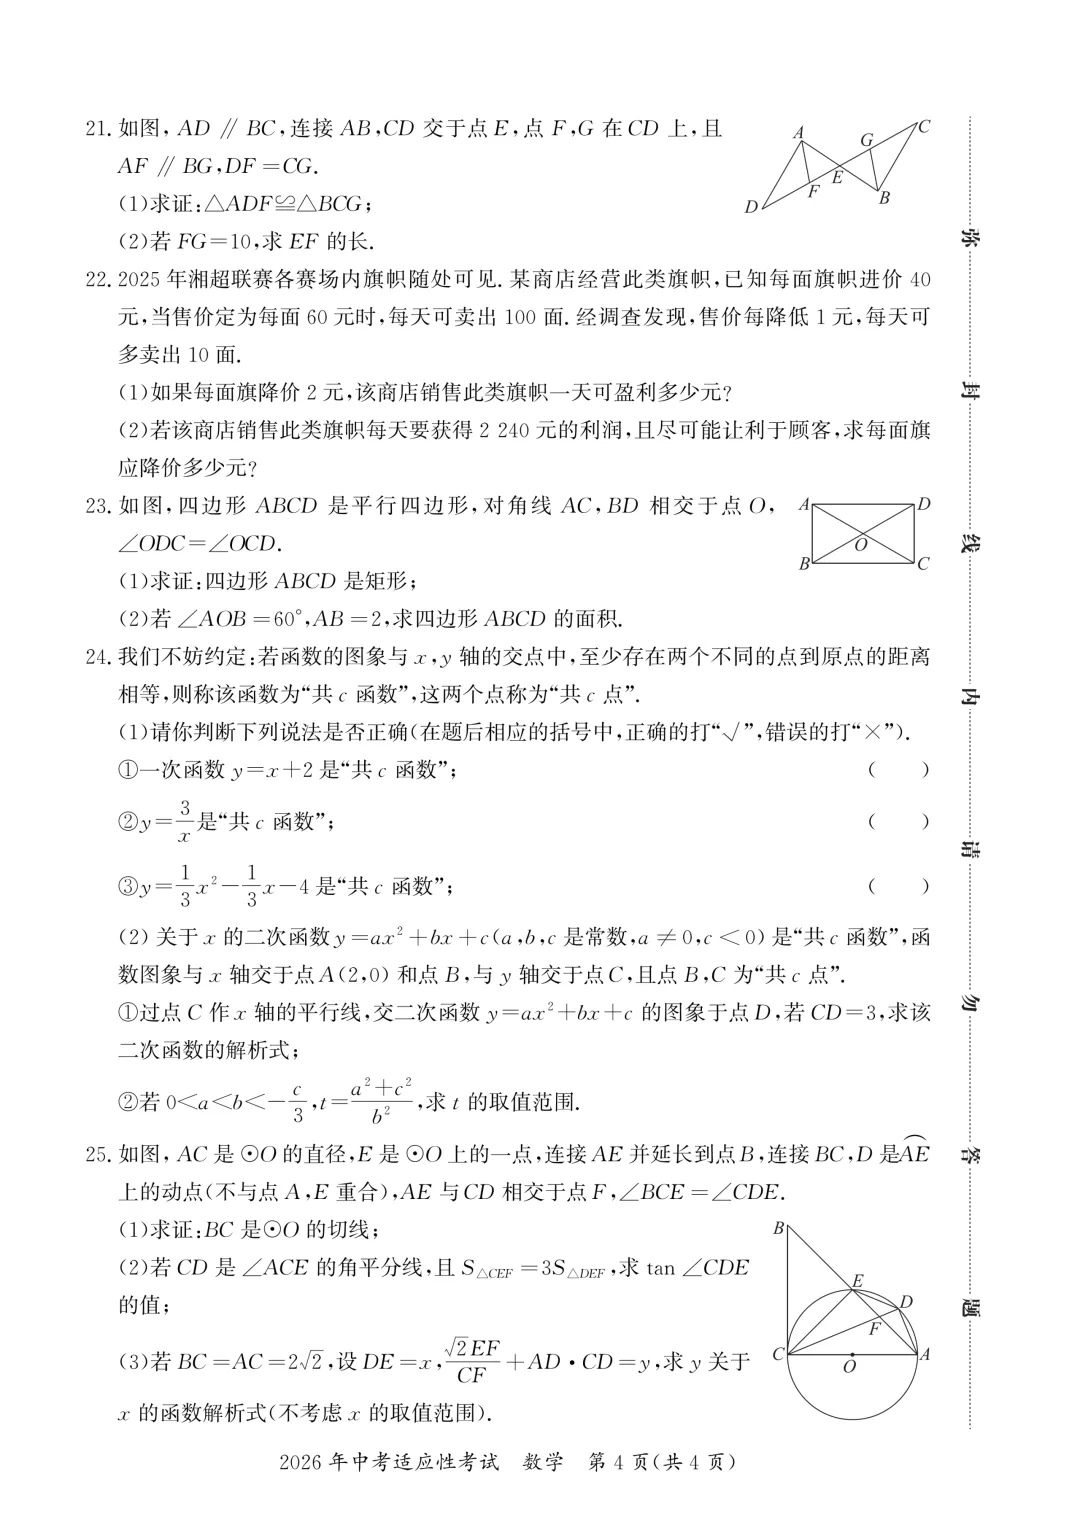 21. 如图, AD ∥ BC,连接 AB,CD 交于点 E,点 F,G 在 CD 上,且
AF ∥ BG,DF=CG.
(1)求证:△ADF≌△BCG;
(2)若 FG=10,求 EF 的长.
A
G
C
E
F
B
D
22. 2025 年湘超联赛各赛场内旗帜随处可见. 某商店经营此类旗帜,已知每面旗帜进价 40
元,当售价定为每面 60 元时,每天可卖出 100 面. 经调查发现,售价每降低 1 元,每天可
多卖出 10 面.
(1)如果每面旗降价 2 元,该商店销售此类旗帜一天可盈利多少元?
(2)若该商店销售此类旗帜每天要获得 2 240 元的利润,且尽可能让利于顾客,求每面旗
应降价多少元?
23. 如图,四边形 ABCD 是平行四边形,对角线 AC,BD 相交于点 O,
∠ODC=∠OCD.
(1)求证:四边形 ABCD 是矩形;
(2)若 ∠AOB=60°,AB=2,求四边形 ABCD 的面积.
A
D
O
B
C
24. 我们不妨约定:若函数的图象与 x,y 轴的交点中,至少存在两个不同的点到原点的距离
相等,则称该函数为“共 c 函数”,这两个点称为“共 c 点”.
(1)请你判断下列说法是否正确(在题后相应的括号中,正确的打“√”,错误的打“×”).
①一次函数 y=x+2 是“共 c 函数”; (　　)
②y=3/x 是“共 c 函数”; (　　)
③y=1/3x²-1/3x-4 是“共 c 函数”; (　　)
(2) 关于 x 的二次函数 y=ax²+bx+c(a,b,c 是常数,a≠0,c<0) 是“共 c 函数”,函
数图象与 x 轴交于点 A(2,0) 和点 B,与 y 轴交于点 C,且点 B,C 为“共 c 点”.
①过点 C 作 x 轴的平行线,交二次函数 y=ax²+bx+c 的图象于点 D,若 CD=3,求该
二次函数的解析式;
②若 0<a<b<-c/3,t=(a²+c²)/b²,求 t 的取值范围.
25. 如图, AC 是 ⊙O 的直径,E 是 ⊙O 上的一点,连接 AE 并延长到点 B,连接 BC,D 是 A͡E
上的动点(不与点 A,E 重合),AE 与 CD 相交于点 F,∠BCE=∠CDE.
(1)求证:BC 是⊙O 的切线;
(2)若 CD 是 ∠ACE 的角平分线,且 S△CEF=3S△DEF,求 tan ∠CDE
的值;
(3)若 BC=AC=2√2,设 DE=x,√2EF/CF+AD·CD=y,求 y 关于
x 的函数解析式(不考虑 x 的取值范围).
B
E
D
F
C
O
A
2026 年中考适应性考试　数学　第 4 页(共 4 页)
弥
封
线
内
请
勿
答
题